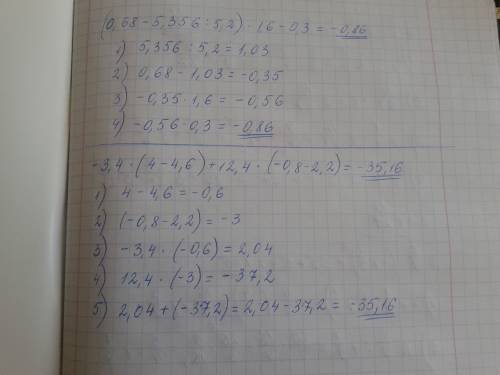 (0,68-5,356:5,2)·1,6-0,3=-0,86
1) 5,356:5,2=1,03
2) 0,68-1,03=-0,35
3) -0,35·1,6=-0,56
4) -0,56-0,3=-0,86
-3,4·(4-4,6)+12,4·(-0,8-2,2)=-35,16
1) 4-4,6=-0,6
2) (-0,8-2,2)=-3
3) -3,4·(-0,6)=2,04
4) 12,4·(-3)=-37,2
5) 2,04+(-37,2)=2,04-37,2=-35,16